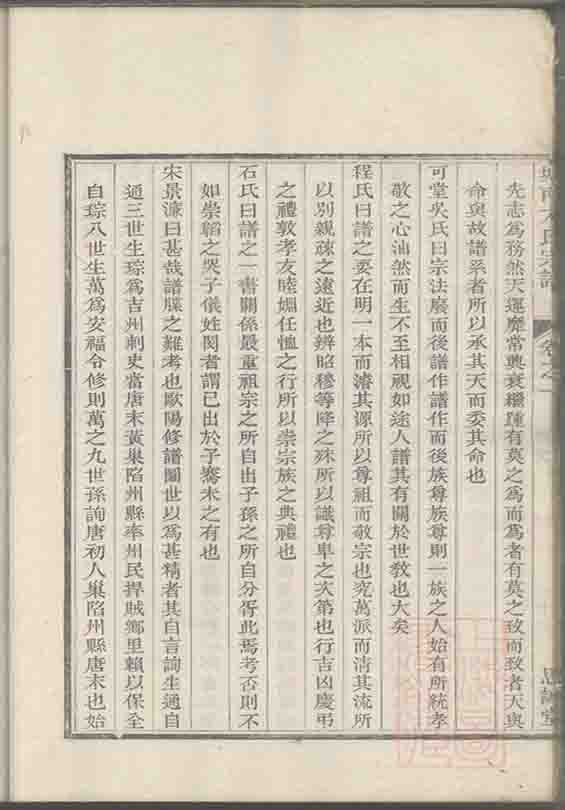 氏宗譜
卷之一
先志爲務然天運靡常興衰繼踵有莫之爲而爲者有莫之致而致者天與
命與故譜系者所以承其天而委其命也
可堂吳氏曰宗法廢而後譜作譜作而後族尊族尊則一族之人始有所統孝
敬之心油然而生不至相視如途人譜其有關於世敎也大矣
程氏曰譜之要在明一本而濬其源所以尊祖而敬宗也究萬派而清其流所
以別親疎之遠近也辨昭穆等降之殊所以識尊卑之次第也行吉凶慶弔
之禮敦孝友睦婣任恤之行所以崇宗族之典禮也
石氏曰譜之一書關係最重祖宗之所自出子孫之所自分胥此焉考否則不
如崇韜之哭子儀姓閔者謂已出於子騫未之有也
宋景濂曰甚哉譜牒之難考也歐陽修譜圖世以爲甚精者其自言詢生通自
通三世生琮爲吉州刺史當唐末黃巢陷州縣率州民捍賊鄉里賴以保全
自琮八世生萬爲安福令修則萬之九世孫詢唐初人巢陷州縣唐末也始